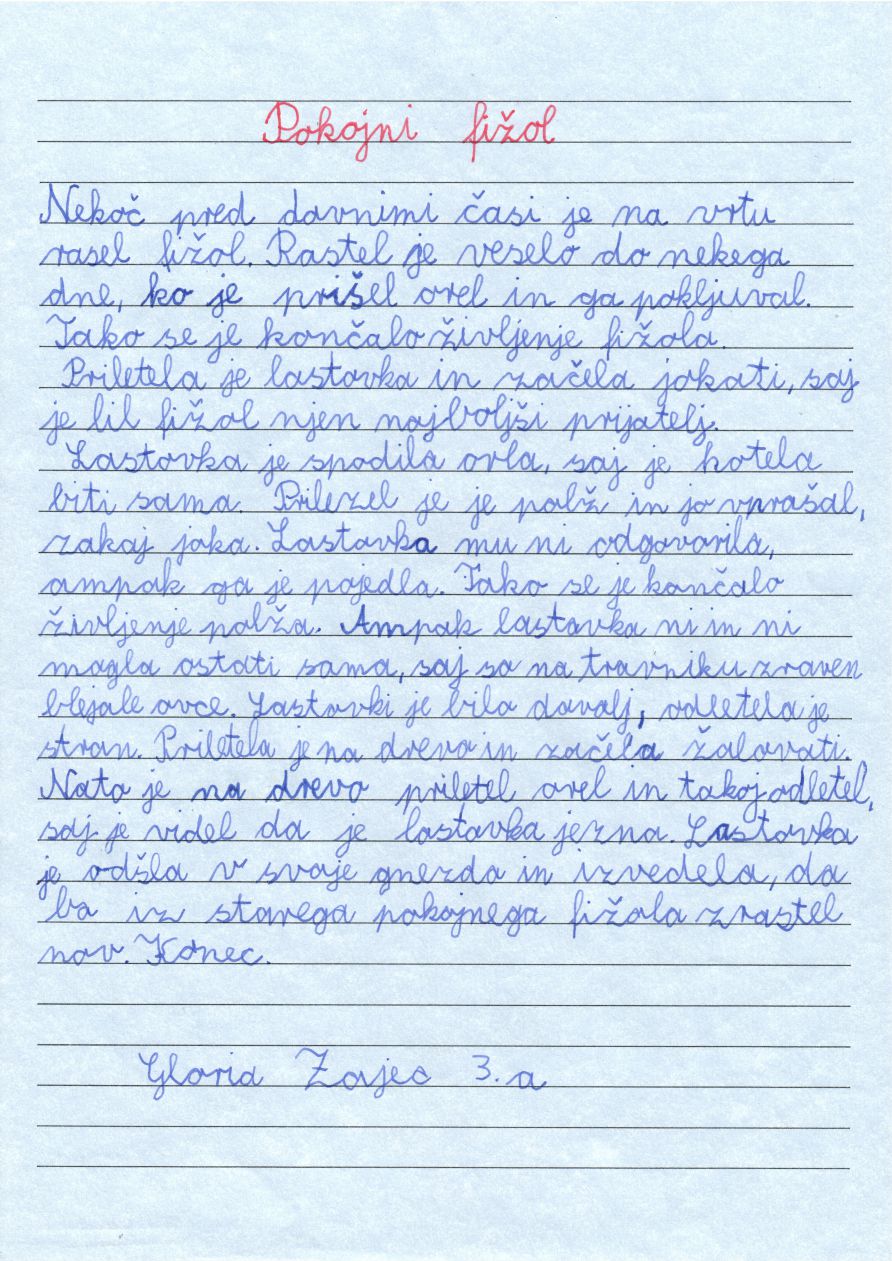 Pokojni fižol
Nekoč pred davnimi časi je na vrtu
rasel fižol. Rastel je veselo do nekega
dne, ko je prišel orel in ga pokljuval.
Tako se je končalo življenje fižola.
Priletela je lastovka in začela jokati, saj
je lil fižol njen najboljši prijatelj.
Lastovka je spodila orla, saj je hotela
biti sama. Prilezel je je polž in jo vprašal,
zakaj joka. Lastovka mu ni odgovorila,
ampak ga je pojedla. Tako se je končalo
življenje polža. Ampak lastovka ni in ni
mogla ostati sama, saj so na travniku zraven
blejale ovce. Lastovki je bilo dovolj, odletela je
stran. Priletela je na drevo in začela žalovati.
Nato je na drevo priletel orel in takoj odletel,
saj je videl da je lastovka jezna. Lastovka
je odšla v svoje gnezdo in izvedela, da
bo iz starega pokojnega fižola zrastel
nov. Konec.
Gloria Zajec 3. a